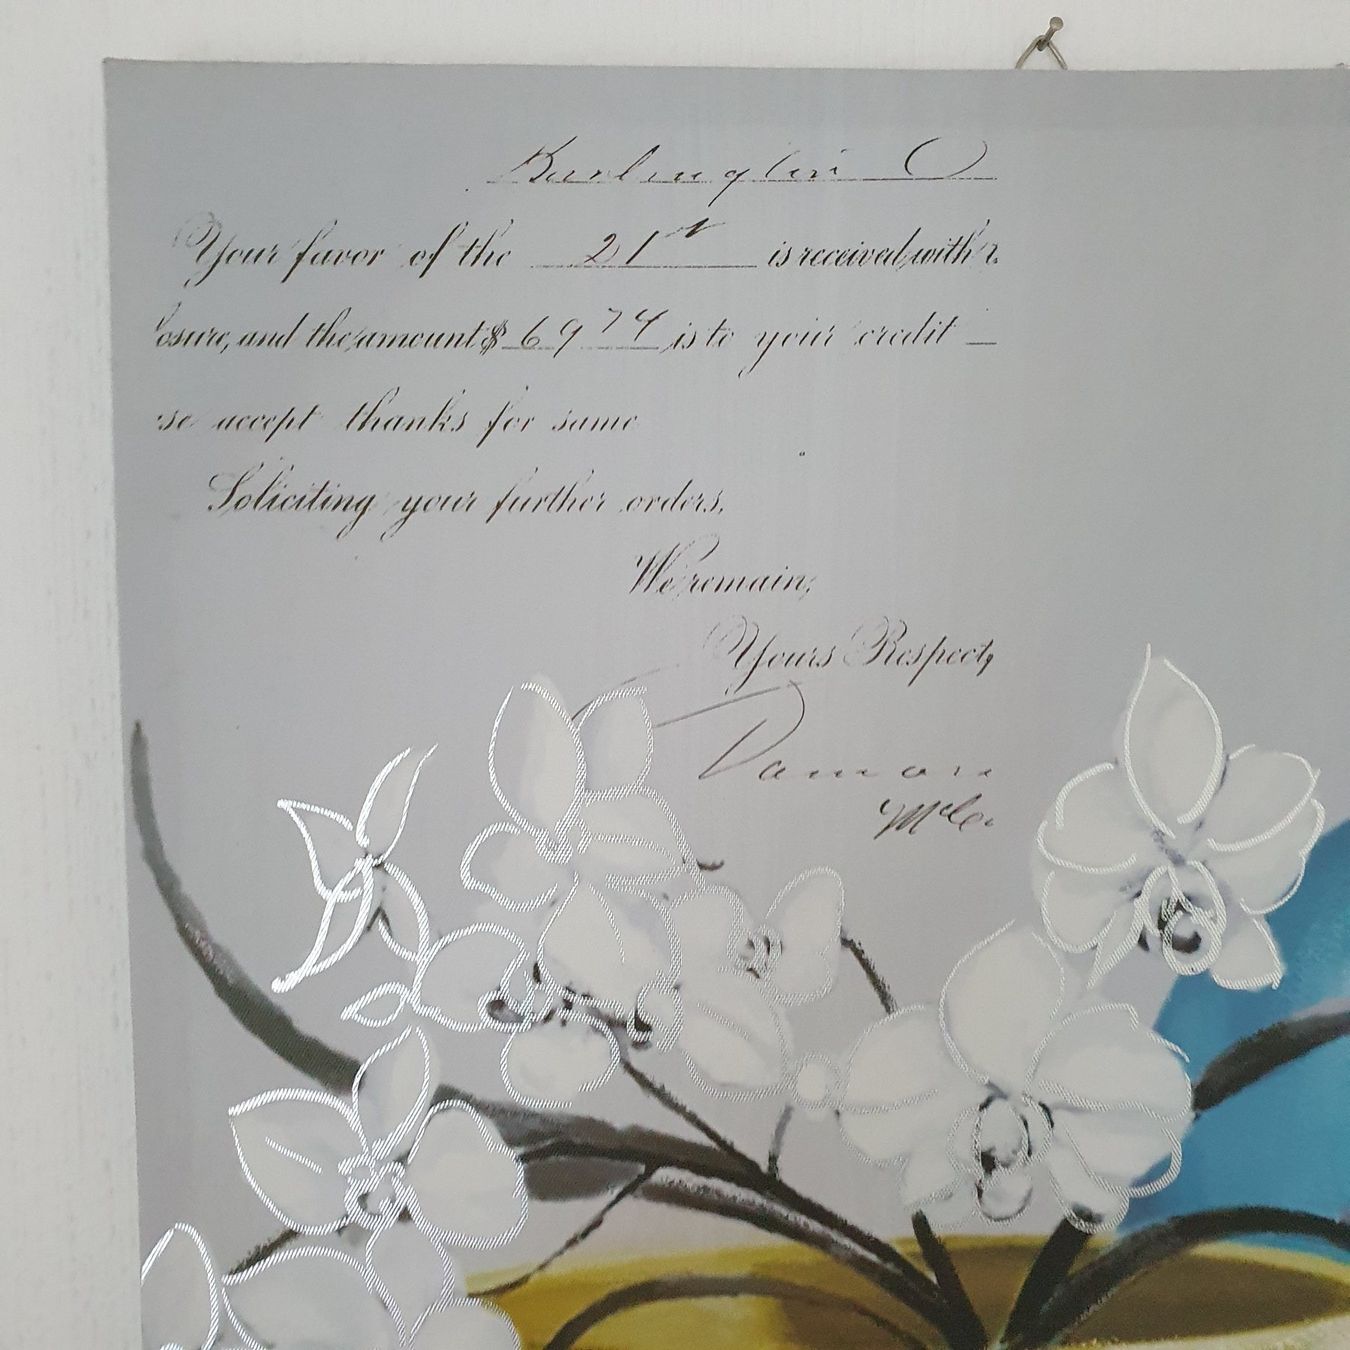 Burlington
Your favor of the 21st is received with
osure, and the amount $ 69 74 is to your credit
se accept thanks for same
Soliciting your further orders,
We remain,
Yours Respect,
Damon
McC.